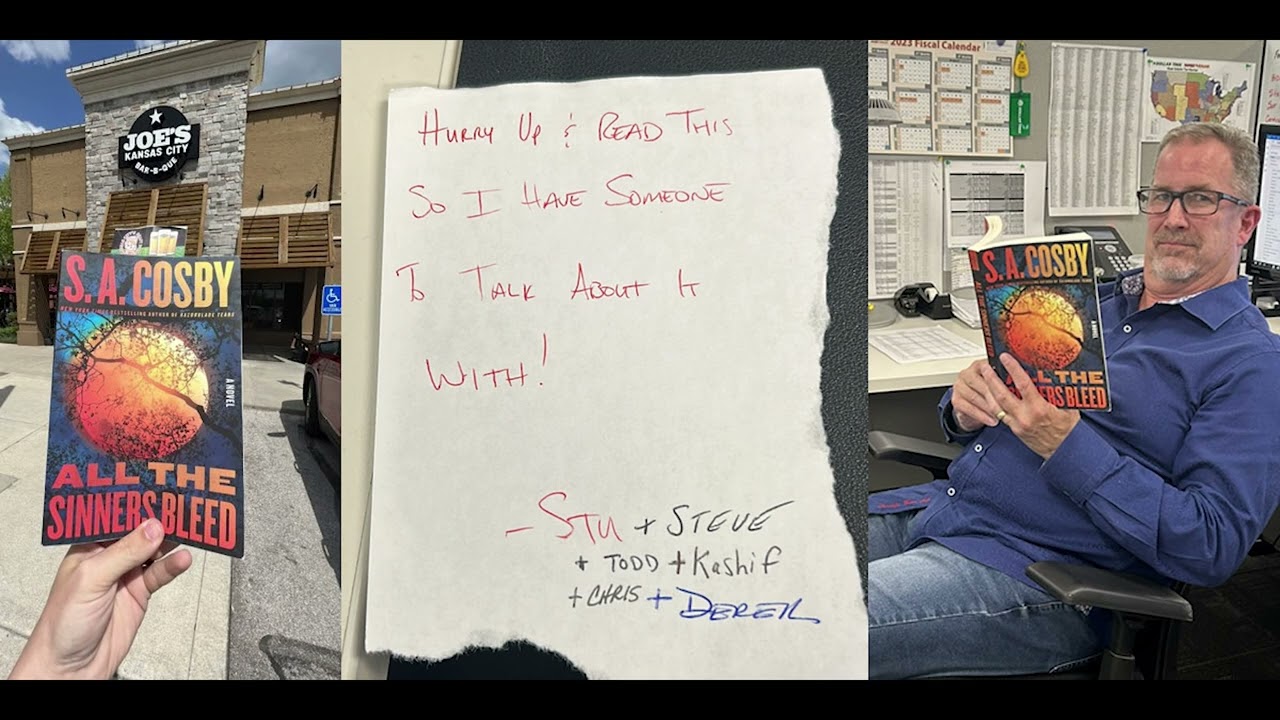 JOE'S
KANSAS CITY
BAR-B-QUE
S. A. COSBY
NEW YORK TIMES BESTSELLING AUTHOR OF RAZORBLADE TEARS
A NOVEL
ALL THE
SINNERS BLEED
HURRY UP & READ THIS
SO I HAVE SOMEONE
TO TALK ABOUT IT
WITH!
- STU + STEVE
+ TODD + Kashif
+ CHRIS + DEREK
2023 Fiscal Calendar
S. A. COSBY
A NOVEL
ALL THE
SINNERS BLEED